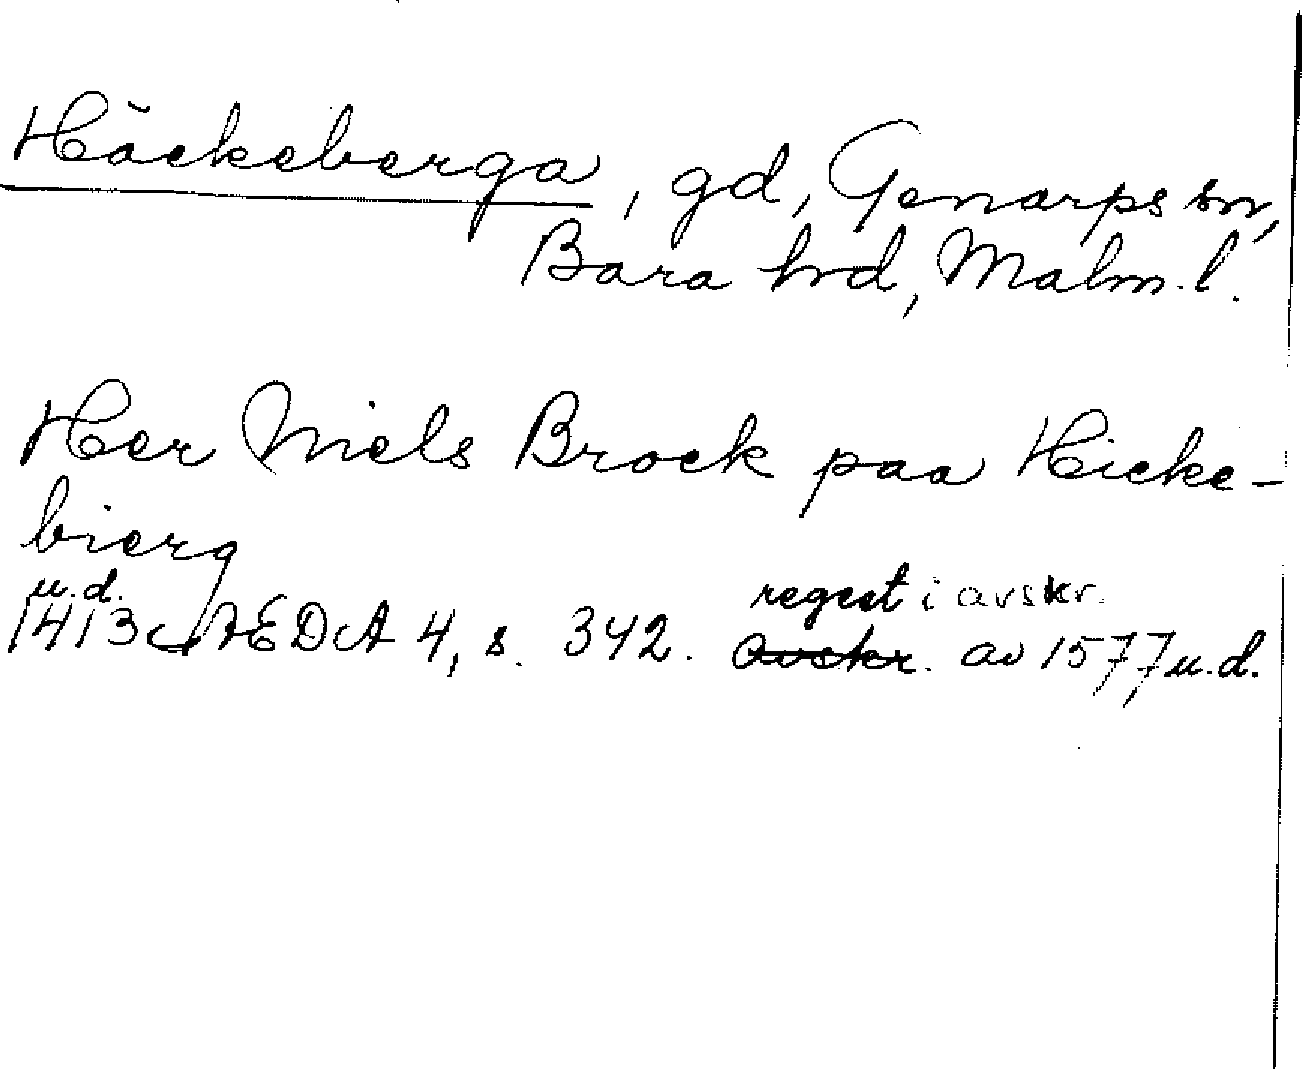 Häckeberga, gd, Genarps sn,
Bara hrd, Malm. l.
Her Niels Brock paa Hicke-
bierg
u.d.
1413 ÆDA 4, s. 342. regest i avskr.
avskr. av 1577, u.d.